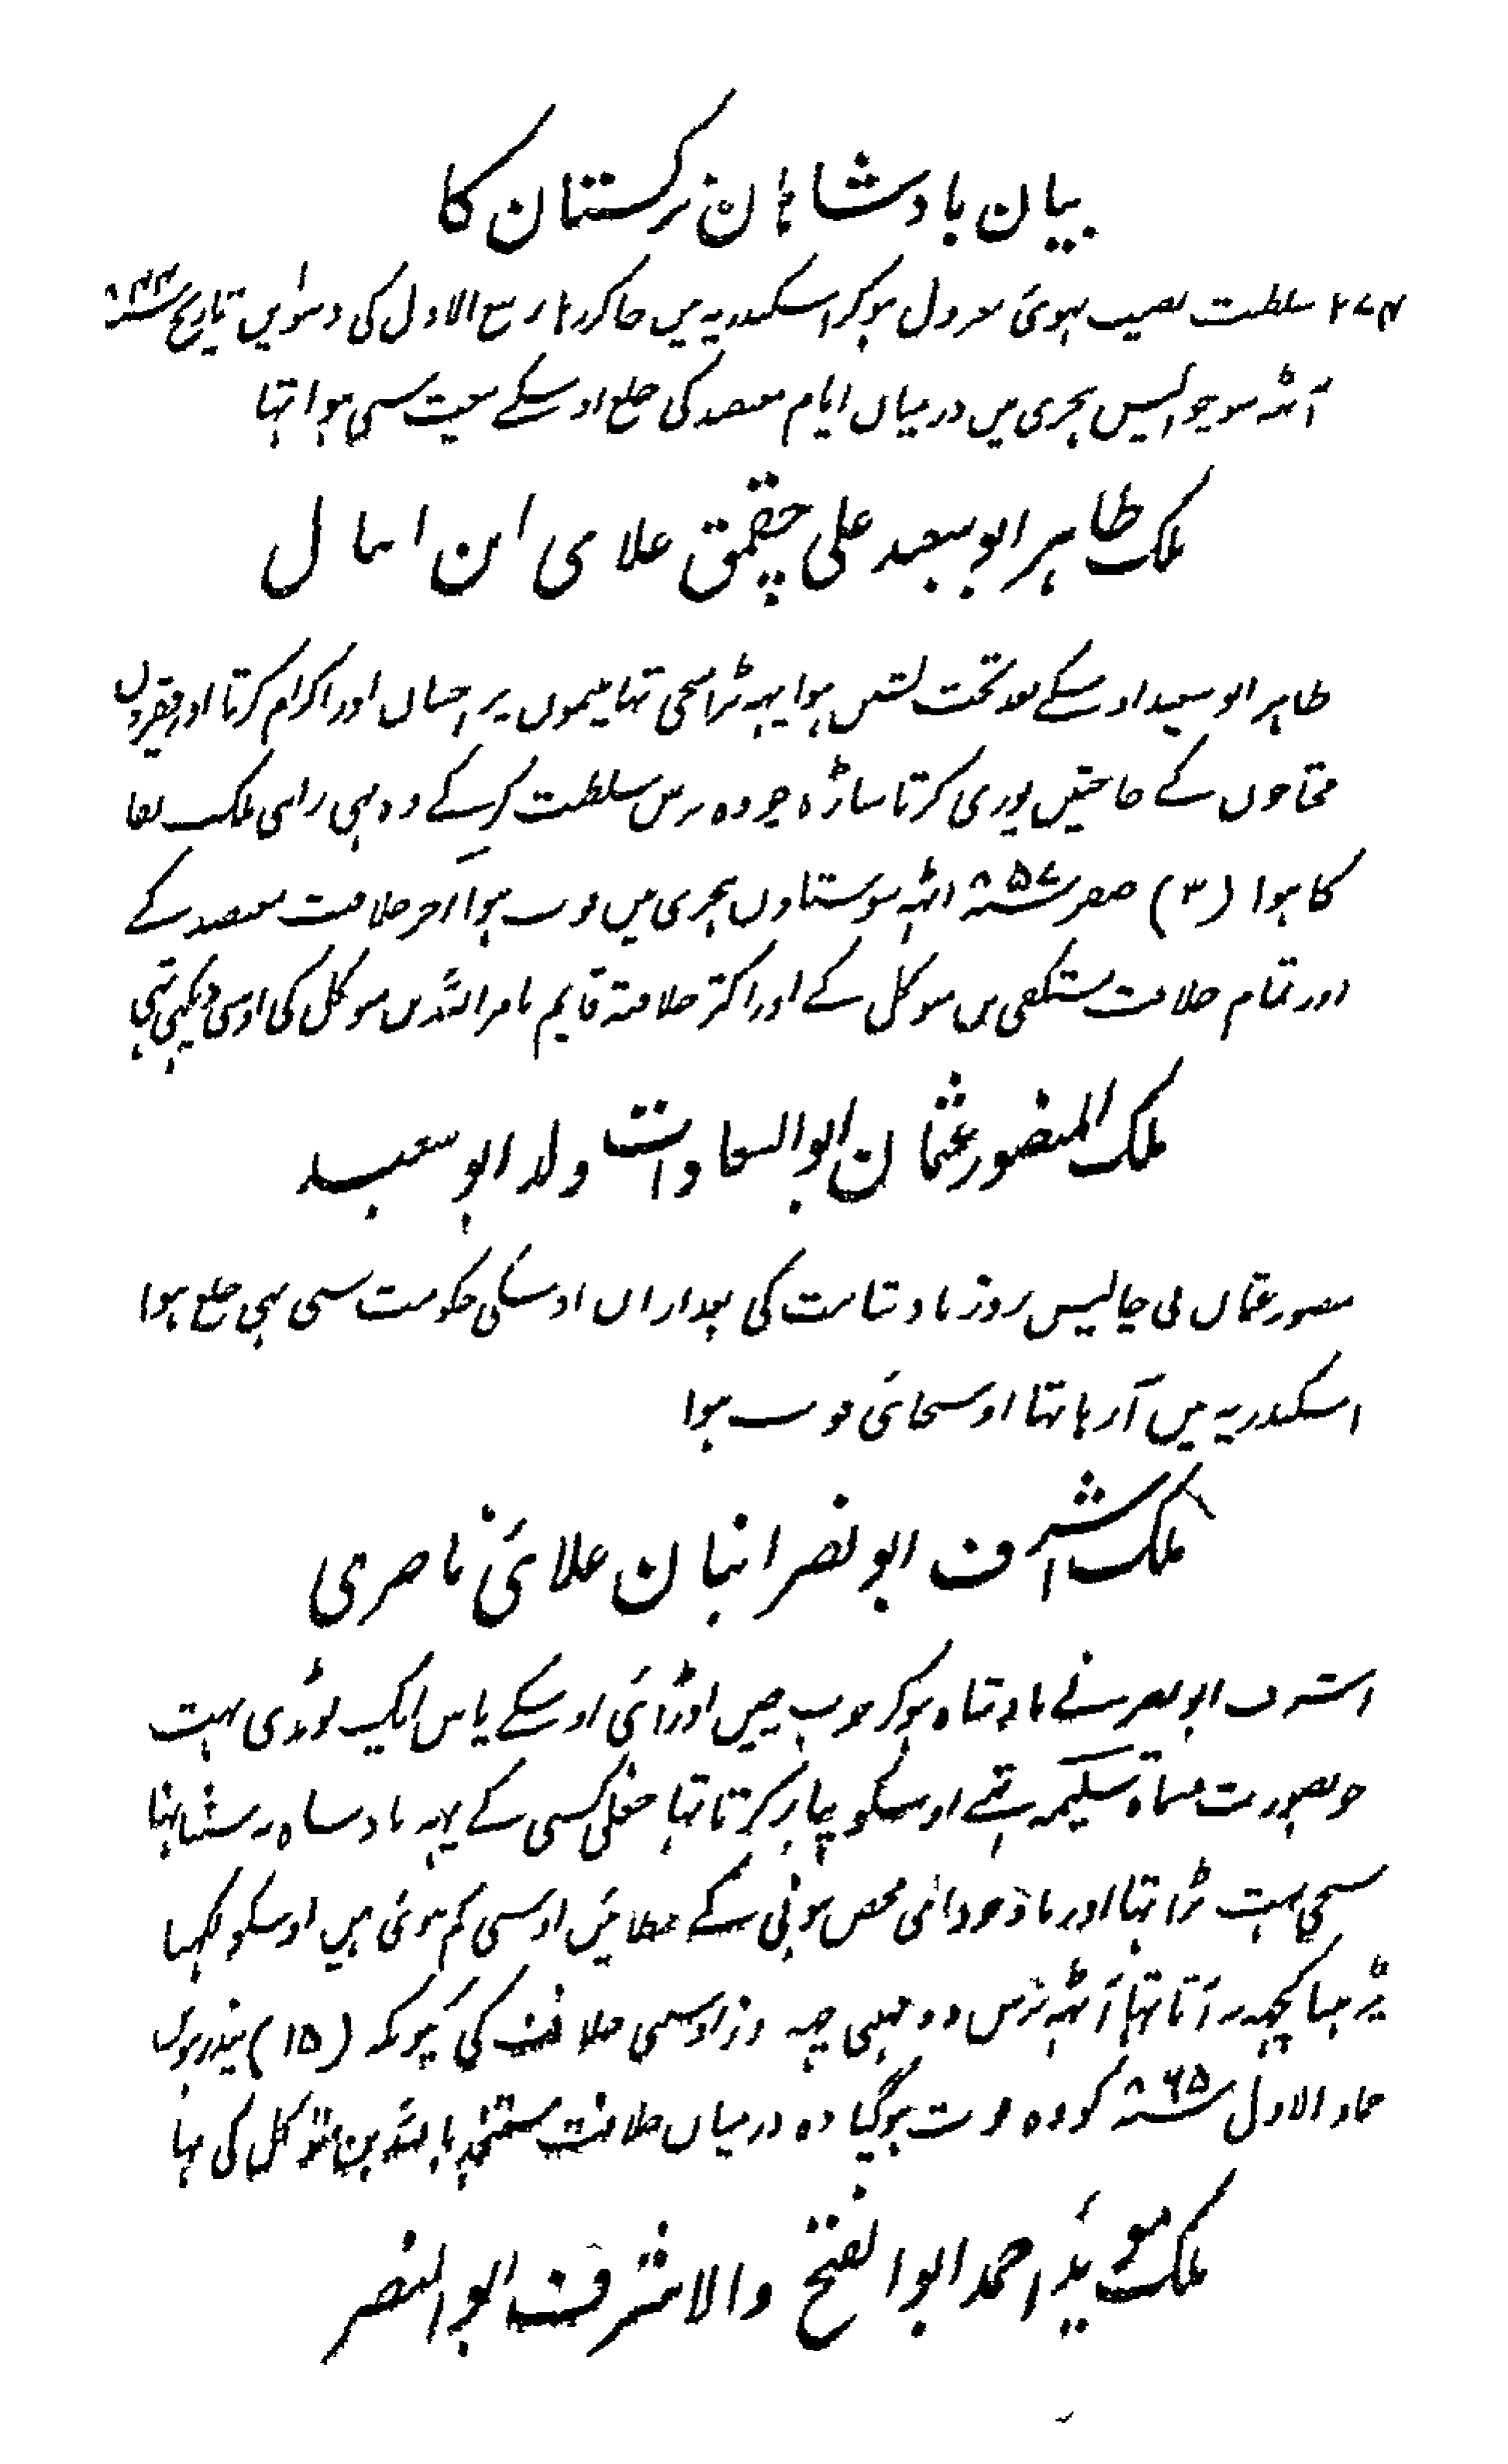 بیان بادشاہان ترکستان کا
۲۷۴ سلطنت نصیب ہوئی معزول ہوکر اسکندریہ میں جاکر رہا ربیع الاول کی دسوایں تاریخ سنہ ۸۴۴
آٹہ سو چوالیس ہجری میں درمیان ایام معتضد کی خلع اوسکے بیعت سی ہوا تہا
ملک ظاہر ابو سعید علی چقمق علای ابن اینال
ظاہر ابو سعید اوسکے بعد تخت نشین ہوا یہہ بڑا سخی تہا یتیموں پر احسان اور اکرام کرتا اور فقیروں
محتاجوں کے حاجتیں پوری کرتا ساڑہ چودہ برس سلطنت کرکے وہ بہی راہی ملک بقا
کا ہوا (۳) صفر سنہ ۸۵۷ اٹہہ سو ستاون ہجری میں فوت ہوا آخر خلافت معتضد کے
اور تمام خلافت مستکفی بن متوکل کے اور اکثر خلافتہ قایم بامر اللہ بن متوکل کی اوسی دیکہی تہی
ملک المنصور عثمان ابو السعادات ولد ابو سعید
منصور عثمان نی چالیس روز بادشاہت کی بعد ازاں اوسکی حکومت سی بہی خلع ہوا
اسکندریہ میں آ رہا تہا اوسجائی فوت ہوا
ملک اشرف ابو نصر انبان علائی ناصری
اشرف ابو نصر نے بادشاہ ہوکر خوب چین اوڑائی اوسکے پاس ایک لونڈی بہت
خوبصورت مسماة سکیمہ تہے اوسکو پیار کرتا تہا خفلی کسی کے یہہ بادساہ نہ سنتا تہا
سخی بہت بڑا تہا اور باوجود امی محض ہونی کے خطائیں اوسی کم ہوئی ہیں اوسکو لکہنا
پڑہنا کچہہ نہ آتا تہا آٹہہ برس دو مہینی چہہ روز اوسی خلافت کی کیونکہ (۱۵) پندرہویں
جماد الاول سنہ ۸۶۵ کو وہ فوت ہوگیا وہ درمیاں خلافت مستنجد باللہ بن متوکل کی تہا
ملک موید احمد ابو الفتح والاشرف ابو النصر